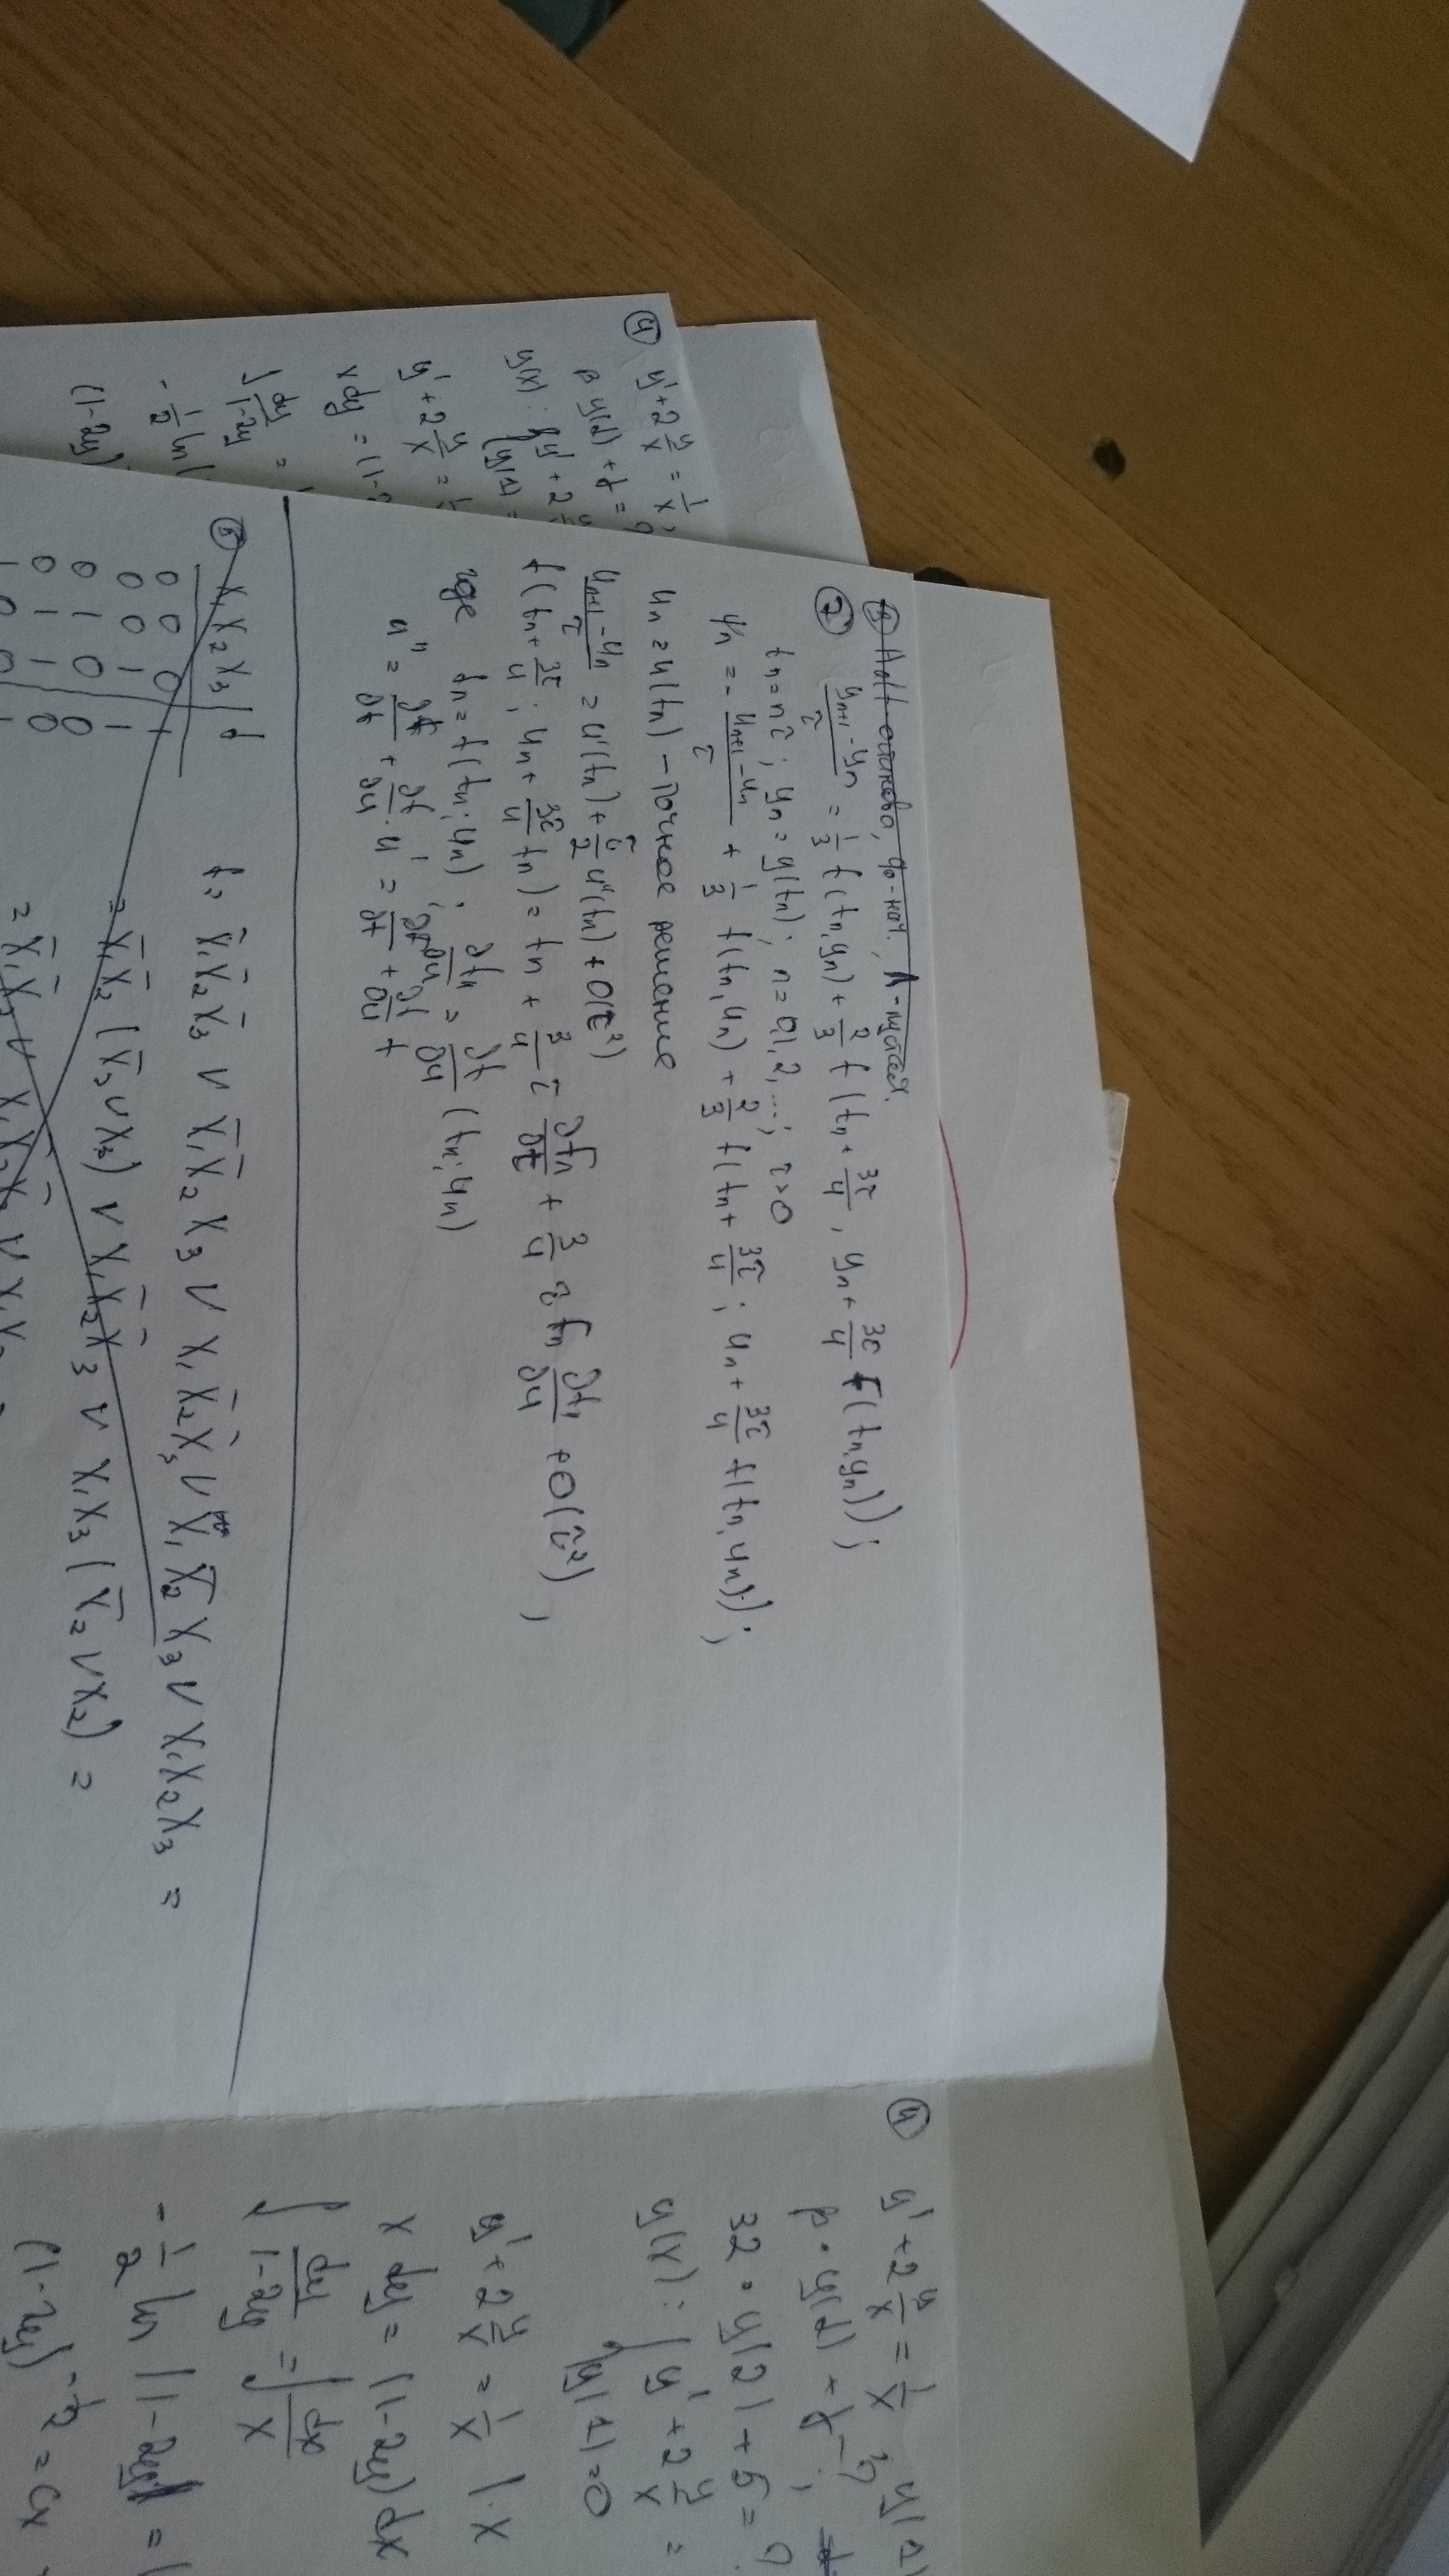 y_{n+1} - y_n / τ = 1/3 f(t_n, y_n) + 2/3 f(t_n + 3τ/4, y_n + 3τ/4 f(t_n, y_n));
⑦
t_n = nτ; y_n = y(t_n); n = 0,1,2,...; τ>0
ψ_n = - u_{n+1} - u_n / τ + 1/3 f(t_n, u_n) + 2/3 f(t_n + 3τ/4; u_n + 3τ/4 f(t_n, u_n));
u_n = u(t_n) - точное решение
u_{n+1} - u_n / τ = u'(t_n) + τ/2 u''(t_n) + O(τ²)
f(t_n + 3τ/4; u_n + 3τ/4 f_n) = f_n + 3/4 τ ∂f_n/∂t + 3/4 τ f_n ∂f_n/∂u + O(τ²),
где f_n = f(t_n; u_n); ∂f_n/∂u = ∂f/∂u (t_n; u_n)
u'' = ∂f/∂t + ∂f/∂u · u' = ∂f/∂t + ∂f/∂u f
⑥ X₁ X₂ X₃ | f
0 0 0 | 1
0 0 1 | 1
0 1 0 | 0
0 1 1 | 0
f = X̄₁X̄₂X̄₃ V X̄₁X̄₂X₃ V X₁X̄₂X̄₃ V X₁X̄₂X₃ V X₁X₂X₃ =
= X̄₁X̄₂ (X̄₃ V X₃) V X₁X̄₂X̄₃ V X₁X₃ (X̄₂ V X₂) =
④ y' + 2 y/x = 1/x
β · y(2) + γ =
y(x): { y' + 2
{ y(1) =
y' + 2 y/x =
x dy = (1-2
∫ dy/1-2y =
- 1/2 ln
(1-2y)
④ y' + 2 y/x = 1/x y(1)
β · y(2) + γ - ?
32 · y(2) + 5 = ?
y(x): { y' + 2 y/x =
{ y(1) = 0
y' + 2 y/x = 1/x | · x
x dy = (1-2y) dx
∫ dy/1-2y = ∫ dx/x
- 1/2 ln |1-2y| =
(1-2y)^{-1/2} = Cx